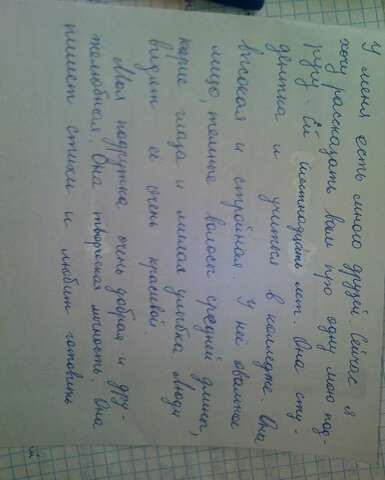 У меня есть много друзей. Сейчас я
хочу рассказать вам про одну мою под-
ругу. Ей шестнадцать лет. Она сту-
дентка и учится в колледже. Она
высокая и стройная. У неё овальное
лицо, темные волосы средней длины,
карие глаза и милая улыбка. Люди
видят ее очень красивой.
Моя подружка очень добрая и дру-
желюбная. Она творческая личность. Она
пишет стихи и любит готовить